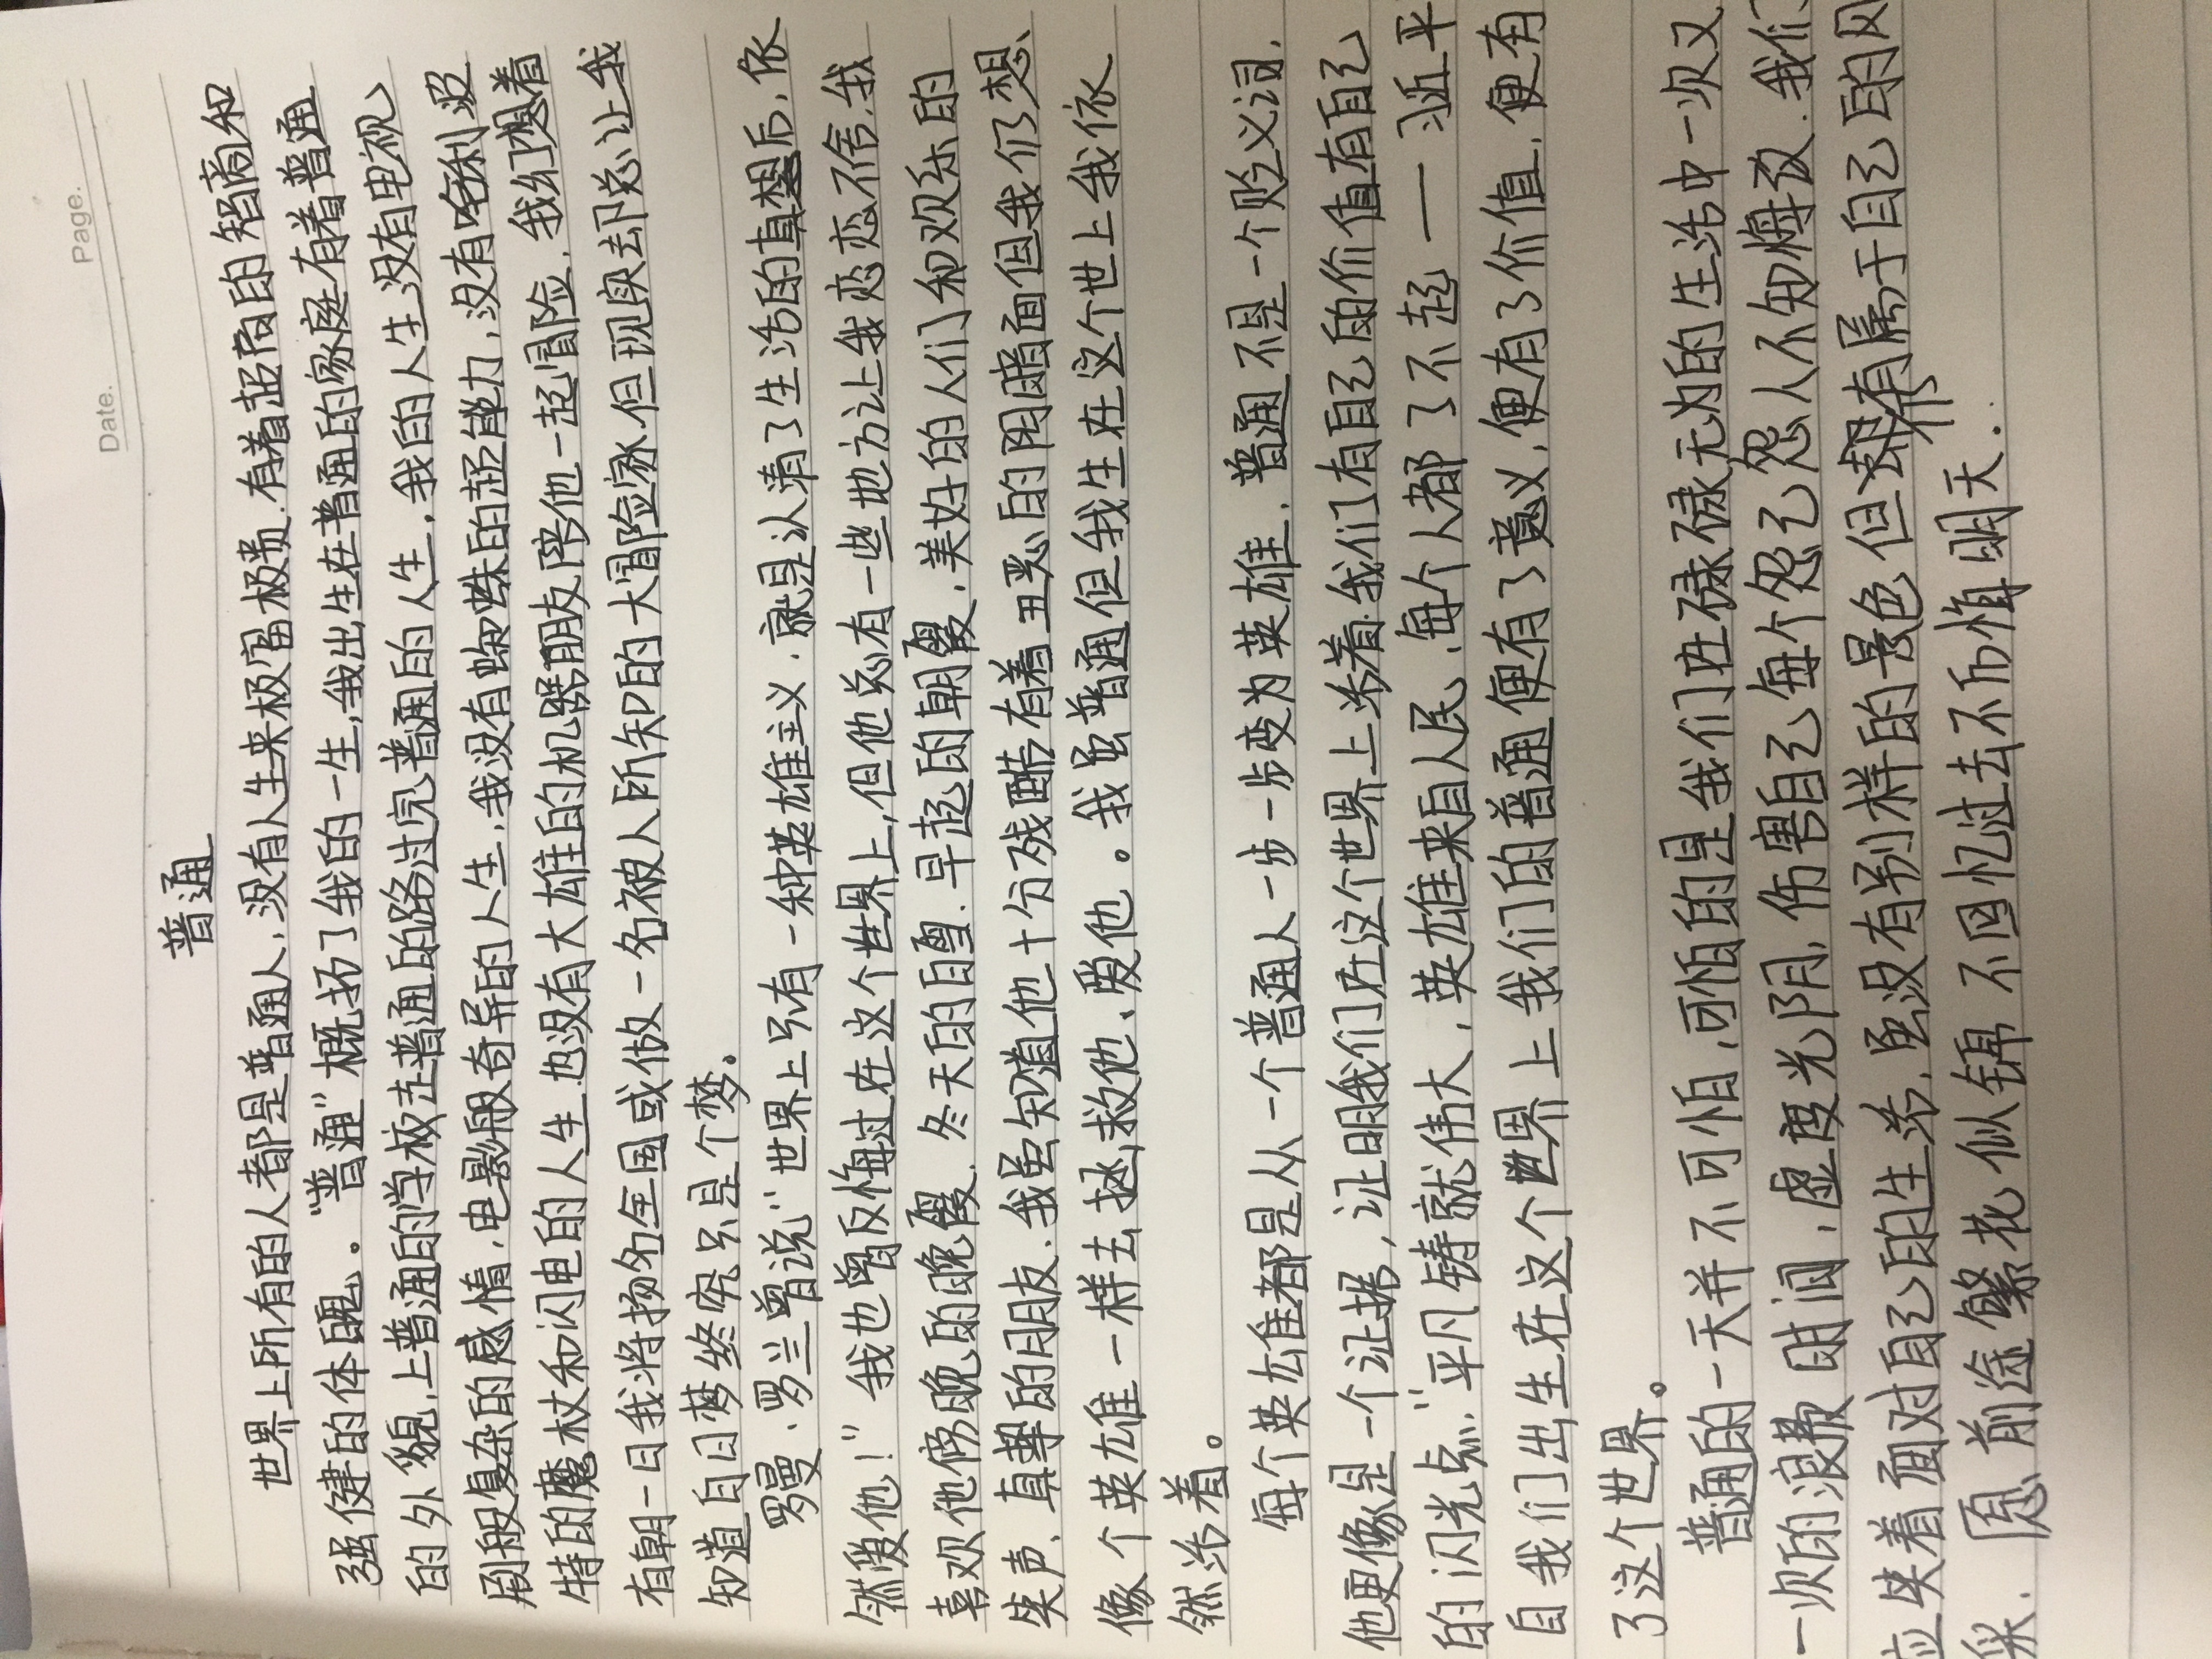 Date.  Page.
普通
世界上所有的人都是普通人，没有人生来极富极贵.有着超高的智商和
强健的体魄。“普通”概括了我的一生，我出生在普通的家庭有着普通
的外貌，上普通的学校走普通的路过完普通的人生，我的人生没有电视
剧般复杂的感情，电影般奇异的人生，我没有蜘蛛的超能力，没有哈利波
特的魔杖和闪电的人生.也没有大雄的机器朋友陪他一起冒险.我幻想着
有朝一日我将扬名全国或做一名被人所知的大冒险家.但现实却总让我
知道白日梦终究只是个梦。
罗曼.罗兰曾说：“世界上只有一种英雄主义.就是认清了生活的真想后，依
然爱他！”我也曾反悔过在这个世界上，但他总有一些地方让我恋恋不舍，我
喜欢他傍晚的晚霞.冬天的白雪.早起的朝霞，美好的人们和欢乐的
笑声.真挚的朋友.我虽知道他十分残酷有着丑恶的阴暗面但我仍想
像个英雄一样去拯救他、爱他。我虽普通但我生在这个世上我依
然活着。
每个英雄都是从一个普通人一步一步变为英雄.普通不是一个贬义词.
他更像是一个证据，证明我们在这个世界上活着.我们有自己的价值有自己
的闪光点.“平凡铸就伟大，英雄来自人民.每个人都了不起——习近平
自我们出生在这个世界上我们的普通便有了意义.便有了价值.便有
了这个世界。
普通的一天并不可怕，可怕的是我们在碌碌无为的生活中一次又
一次的浪费时间.虚度光阴.伤害自己每个怨己怨人不知悔改.我们
应笑着面对自己的生活.虽没有别样的景色但却有属于自己的风
采.愿前途繁花似锦 不回忆过去不后悔明天.